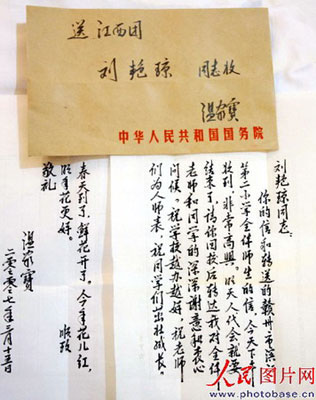 送 江西团
刘艳琼 同志收
温家宝
中华人民共和国国务院
刘艳琼同志:
你的信和转送的赣州市滨江
第二小学全体师生的信,今天下午
收到,非常高興。明天人代会就要
结束了,请你回校后转达我对全体
老师和同学的深深谢意和衷心
问候。祝学校越办越好,祝老师
们为人师表,祝同学们茁壮成长。
春天到了,鲜花开了。今年花儿红,
明年花更好。
顺致
敬礼
温家宝
二〇〇七年三月十五日
人民图片网
photobase.cn